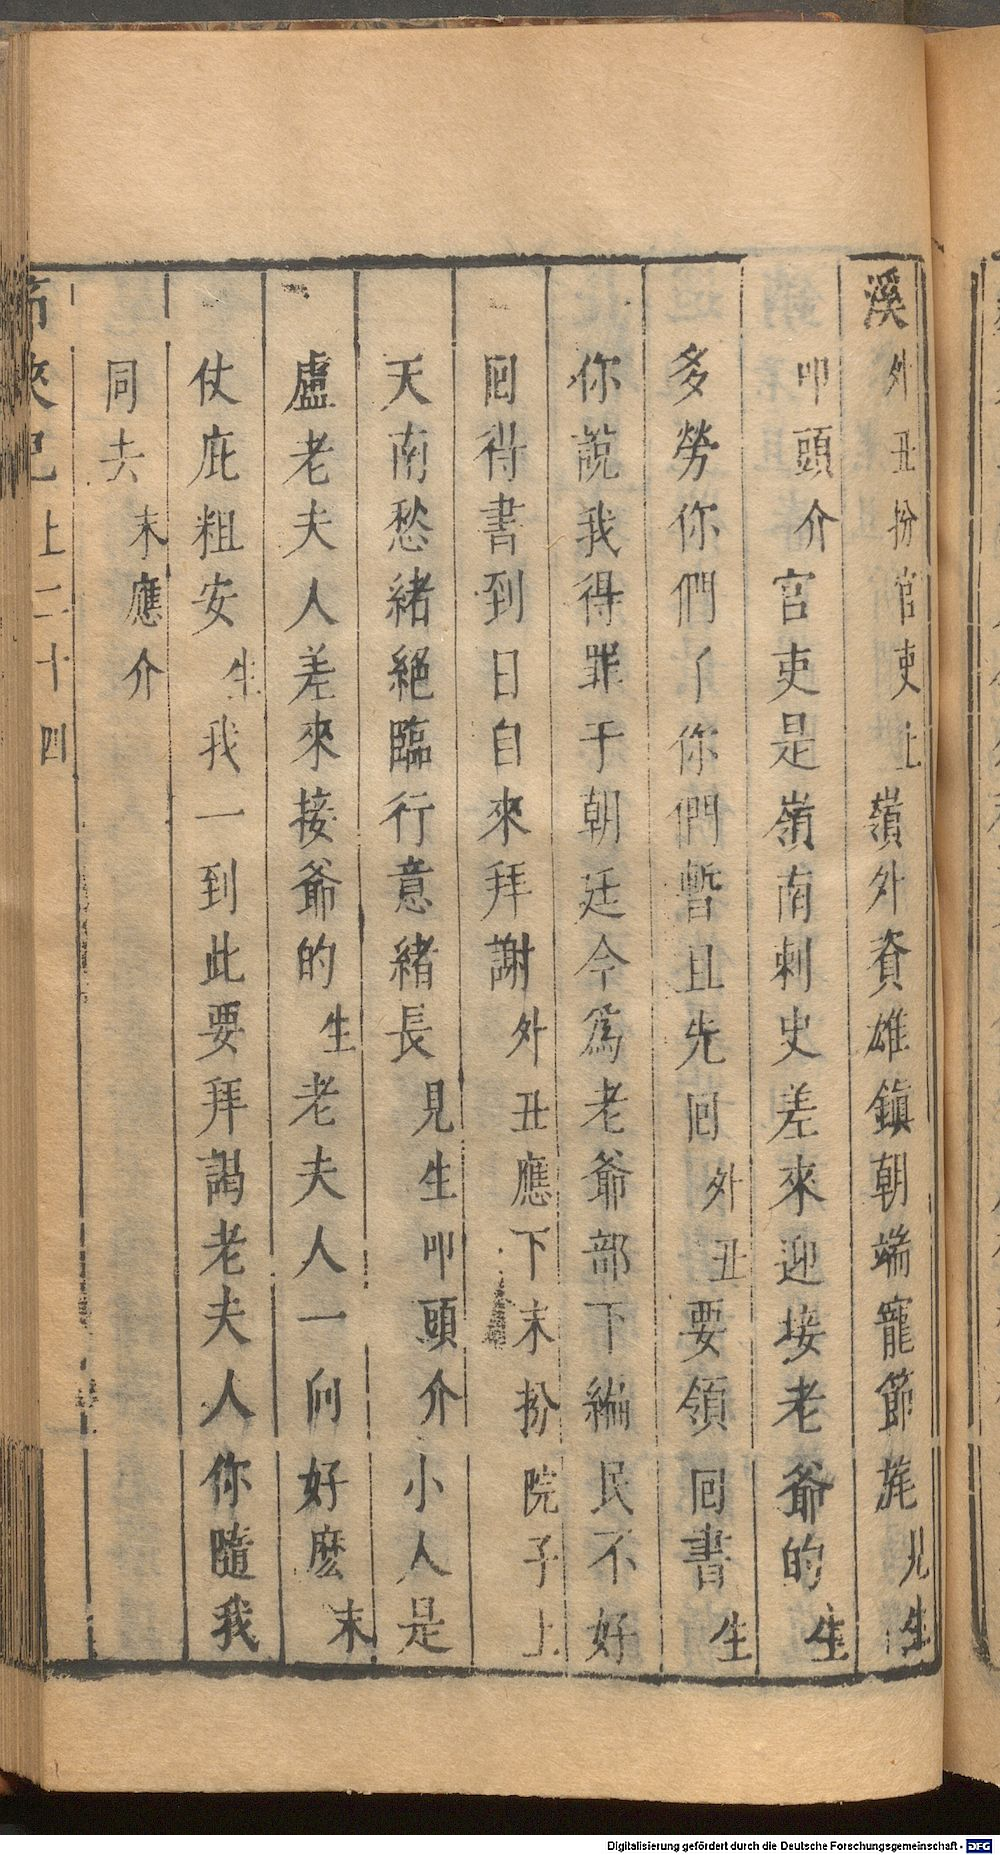 溪外丑扮官吏上嶺外資雄鎮朝端寵節旄見生
叩頭介官吏是嶺南刺史差來迎接老爺的生
多勞你們了你們暫且先回外丑要領回書生
你說我得罪于朝廷今爲老爺部下編民不好
回得書到日自來拜謝外丑應下末扮院子上
天南愁緒絕臨行意緒長見生叩頭介小人是
盧老夫人差來接爺的生老夫人一向好麽末
仗庇粗安生我一到此要拜謁老夫人你隨我
同去末應介
俠記上二十四
Digitalisierung gefördert durch die Deutsche Forschungsgemeinschaft - DFG